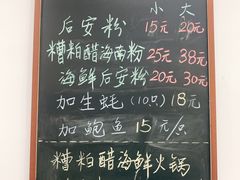 小 大
后安粉 15元 20元
糟粕醋海南粉 25元 38元
海鲜后安粉 20元 30元
加生蚝 (10只) 18元
加鲍鱼 15元/只
糟粕醋海鲜火锅